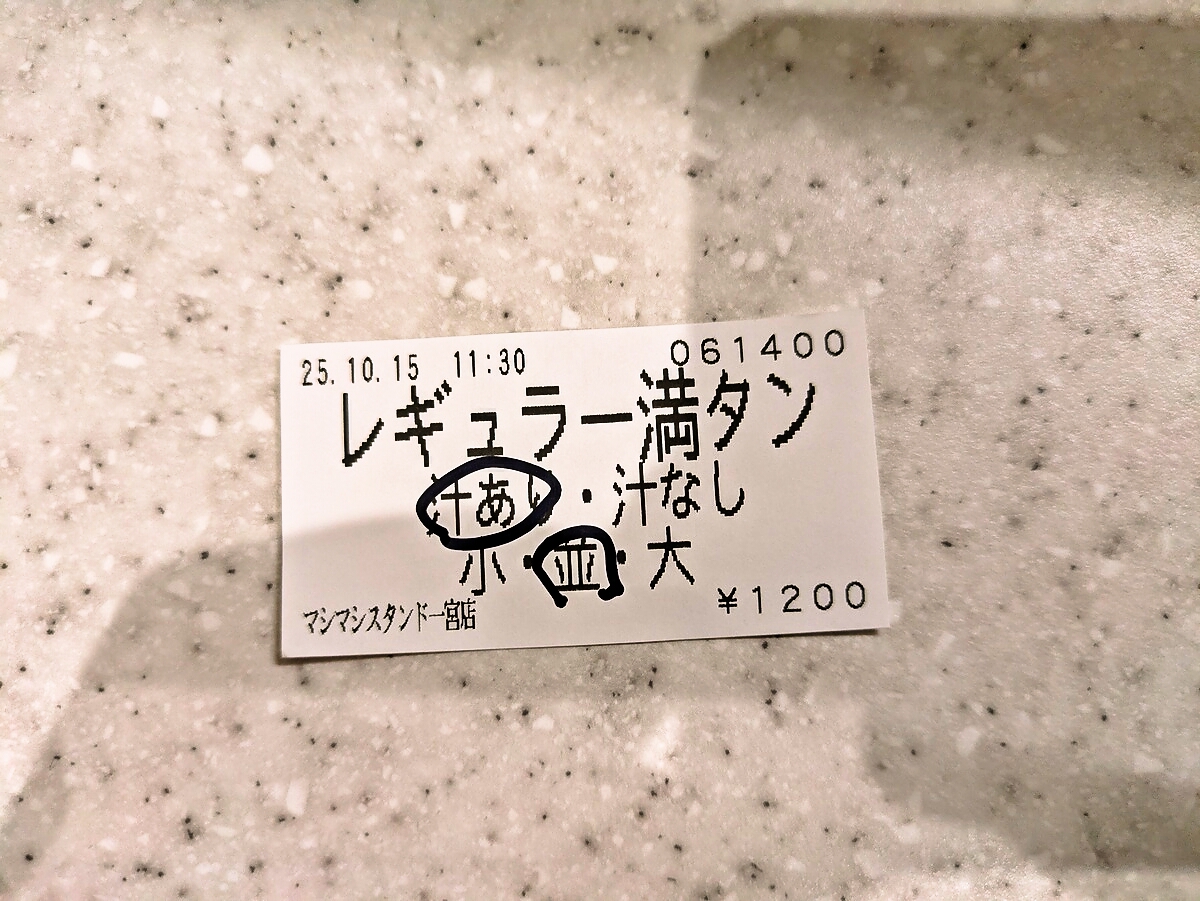 25.10.15 11:30 061400
レギュラー満タン
汁あり・汁なし
小・並・大
¥1200
マシマシスタンド一宮店